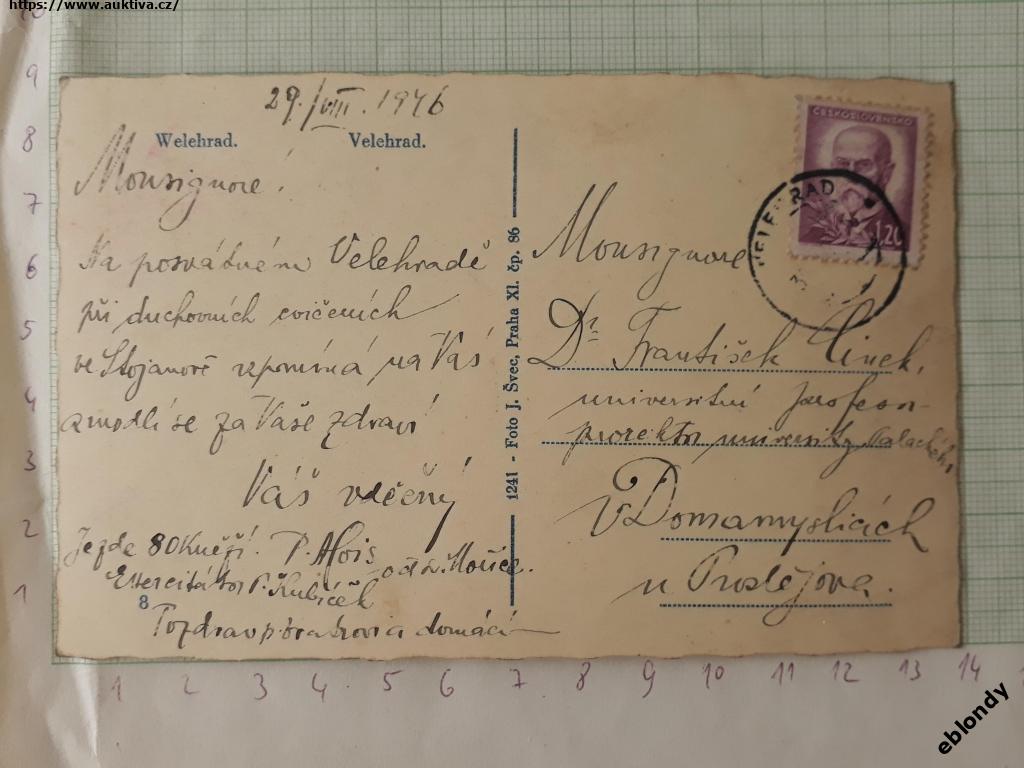 https://www.auktiva.cz/
29./VIII. 1946
Welehrad. Velehrad.
Monsignore!
Na posvátném Velehradě
při duchovních cvičeních
ve Stojanově vzpomíná na Vás
a modlí se za Vaše zdraví
Váš vděčný
P. Alois
Je zde 80 kněží.
Exercitátor P. Kubíček
8
Pozdrav domácí
1241 - Foto J. Švec, Praha XI. čp. 86
ČESKOSLOVENSKO
1.20
VELEHRAD
Monsignore
Dr. František Cinek,
universitní profesor
prorektor university Palackého
V Domamyslicích
u Prostějova.
10
9
8
7
6
5
4
3
2
1
1 2 3 4 5 6 7 8 9 10 11 12 13 14
eblondy